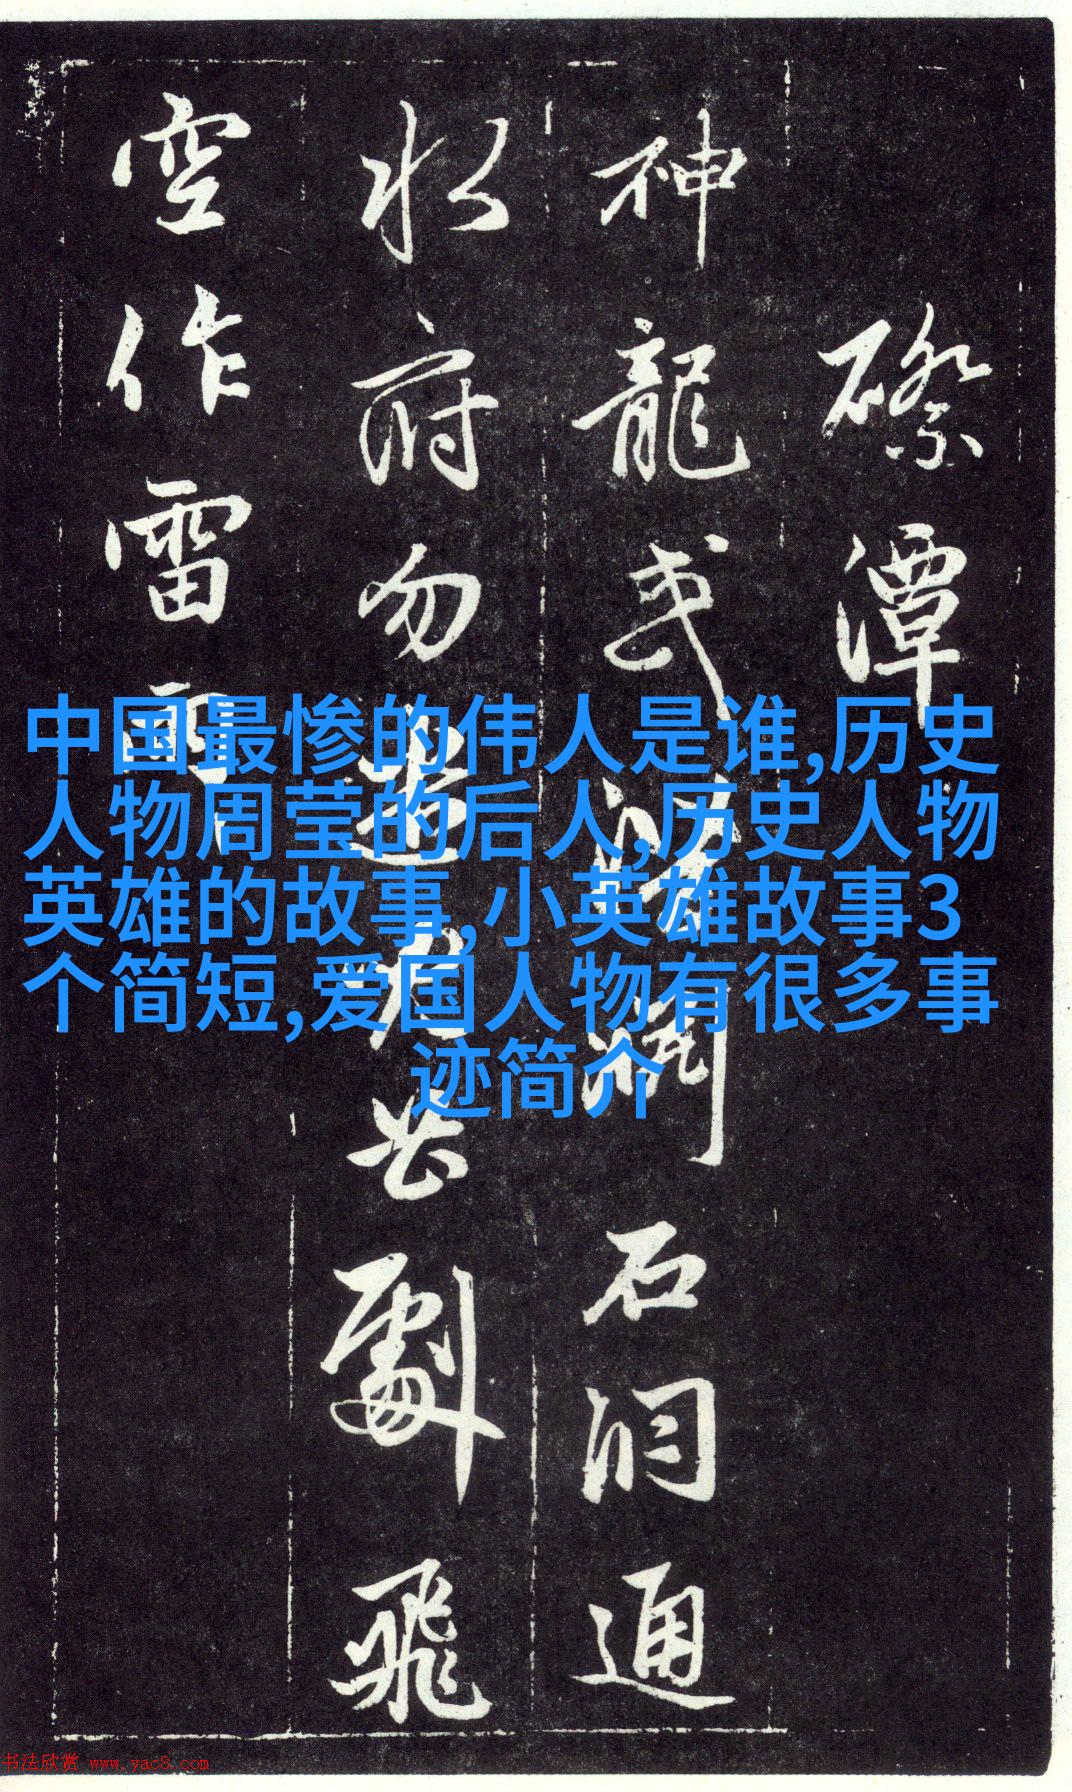 磜潭
神龍或淵石洞通
水府勿遣共劇飛
空作雷雨
中国最惨的伟人是谁,历史
人物周莹的后人,历史人物
英雄的故事,小英雄故事3
个简短,爱国人物有很多事
迹简介
书法欣赏 www.yac8.com